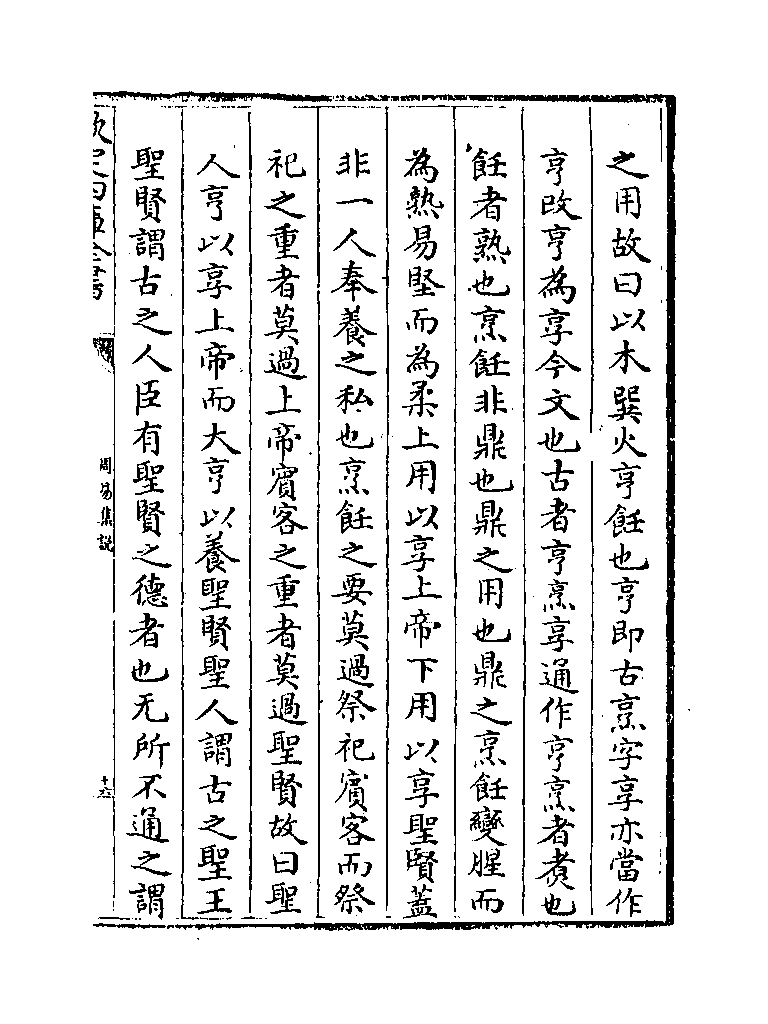 之用故曰以木巽火亨飪也亨即古烹字享亦當作
亨改亨為享今文也古者亨烹享通作亨烹者煑也
飪者熟也烹飪非鼎也鼎之用也鼎之烹飪變腥而
為熟易堅而為柔上用以享上帝下用以享聖賢蓋
非一人奉養之私也烹飪之要莫過祭祀賓客而祭
祀之重者莫過上帝賓客之重者莫過聖賢故曰聖
人亨以享上帝而大亨以養聖賢聖人謂古之聖王
聖賢謂古之人臣有聖賢之德者也无所不通之謂
欽定四庫全書
周易集説